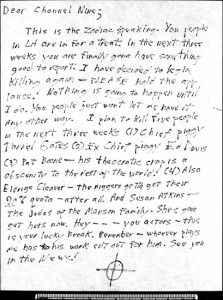 Dear Channel Nine;
This is the Zodiac speaking. You people
in LA are in for a treat. In the next three
weeks you are finally gona have something
good to report. I have decided to begin
killing again - PLEASE hold the app
lause! Nothing is going to happen until
I do. You people just wont let me have it
any other way. I plan to kill five people
in the next three weeks (1) Chief piggy
Darrel Gates (2) Ex Chief piggy Ed Davis
(3) Pat Boone - his theocratic crap is a
obscenity to the rest of the world! (4) Also
Eldrige Cleaver - the niggers gotta get their
20% quota - after all. And Susan Atkins -
The Judas of the Manson Family. Shes gona
get hers now. Hey --- you actors - this
is your lucky break. Remember - whoever plays
me has his work cut out for him. See you
in the News!